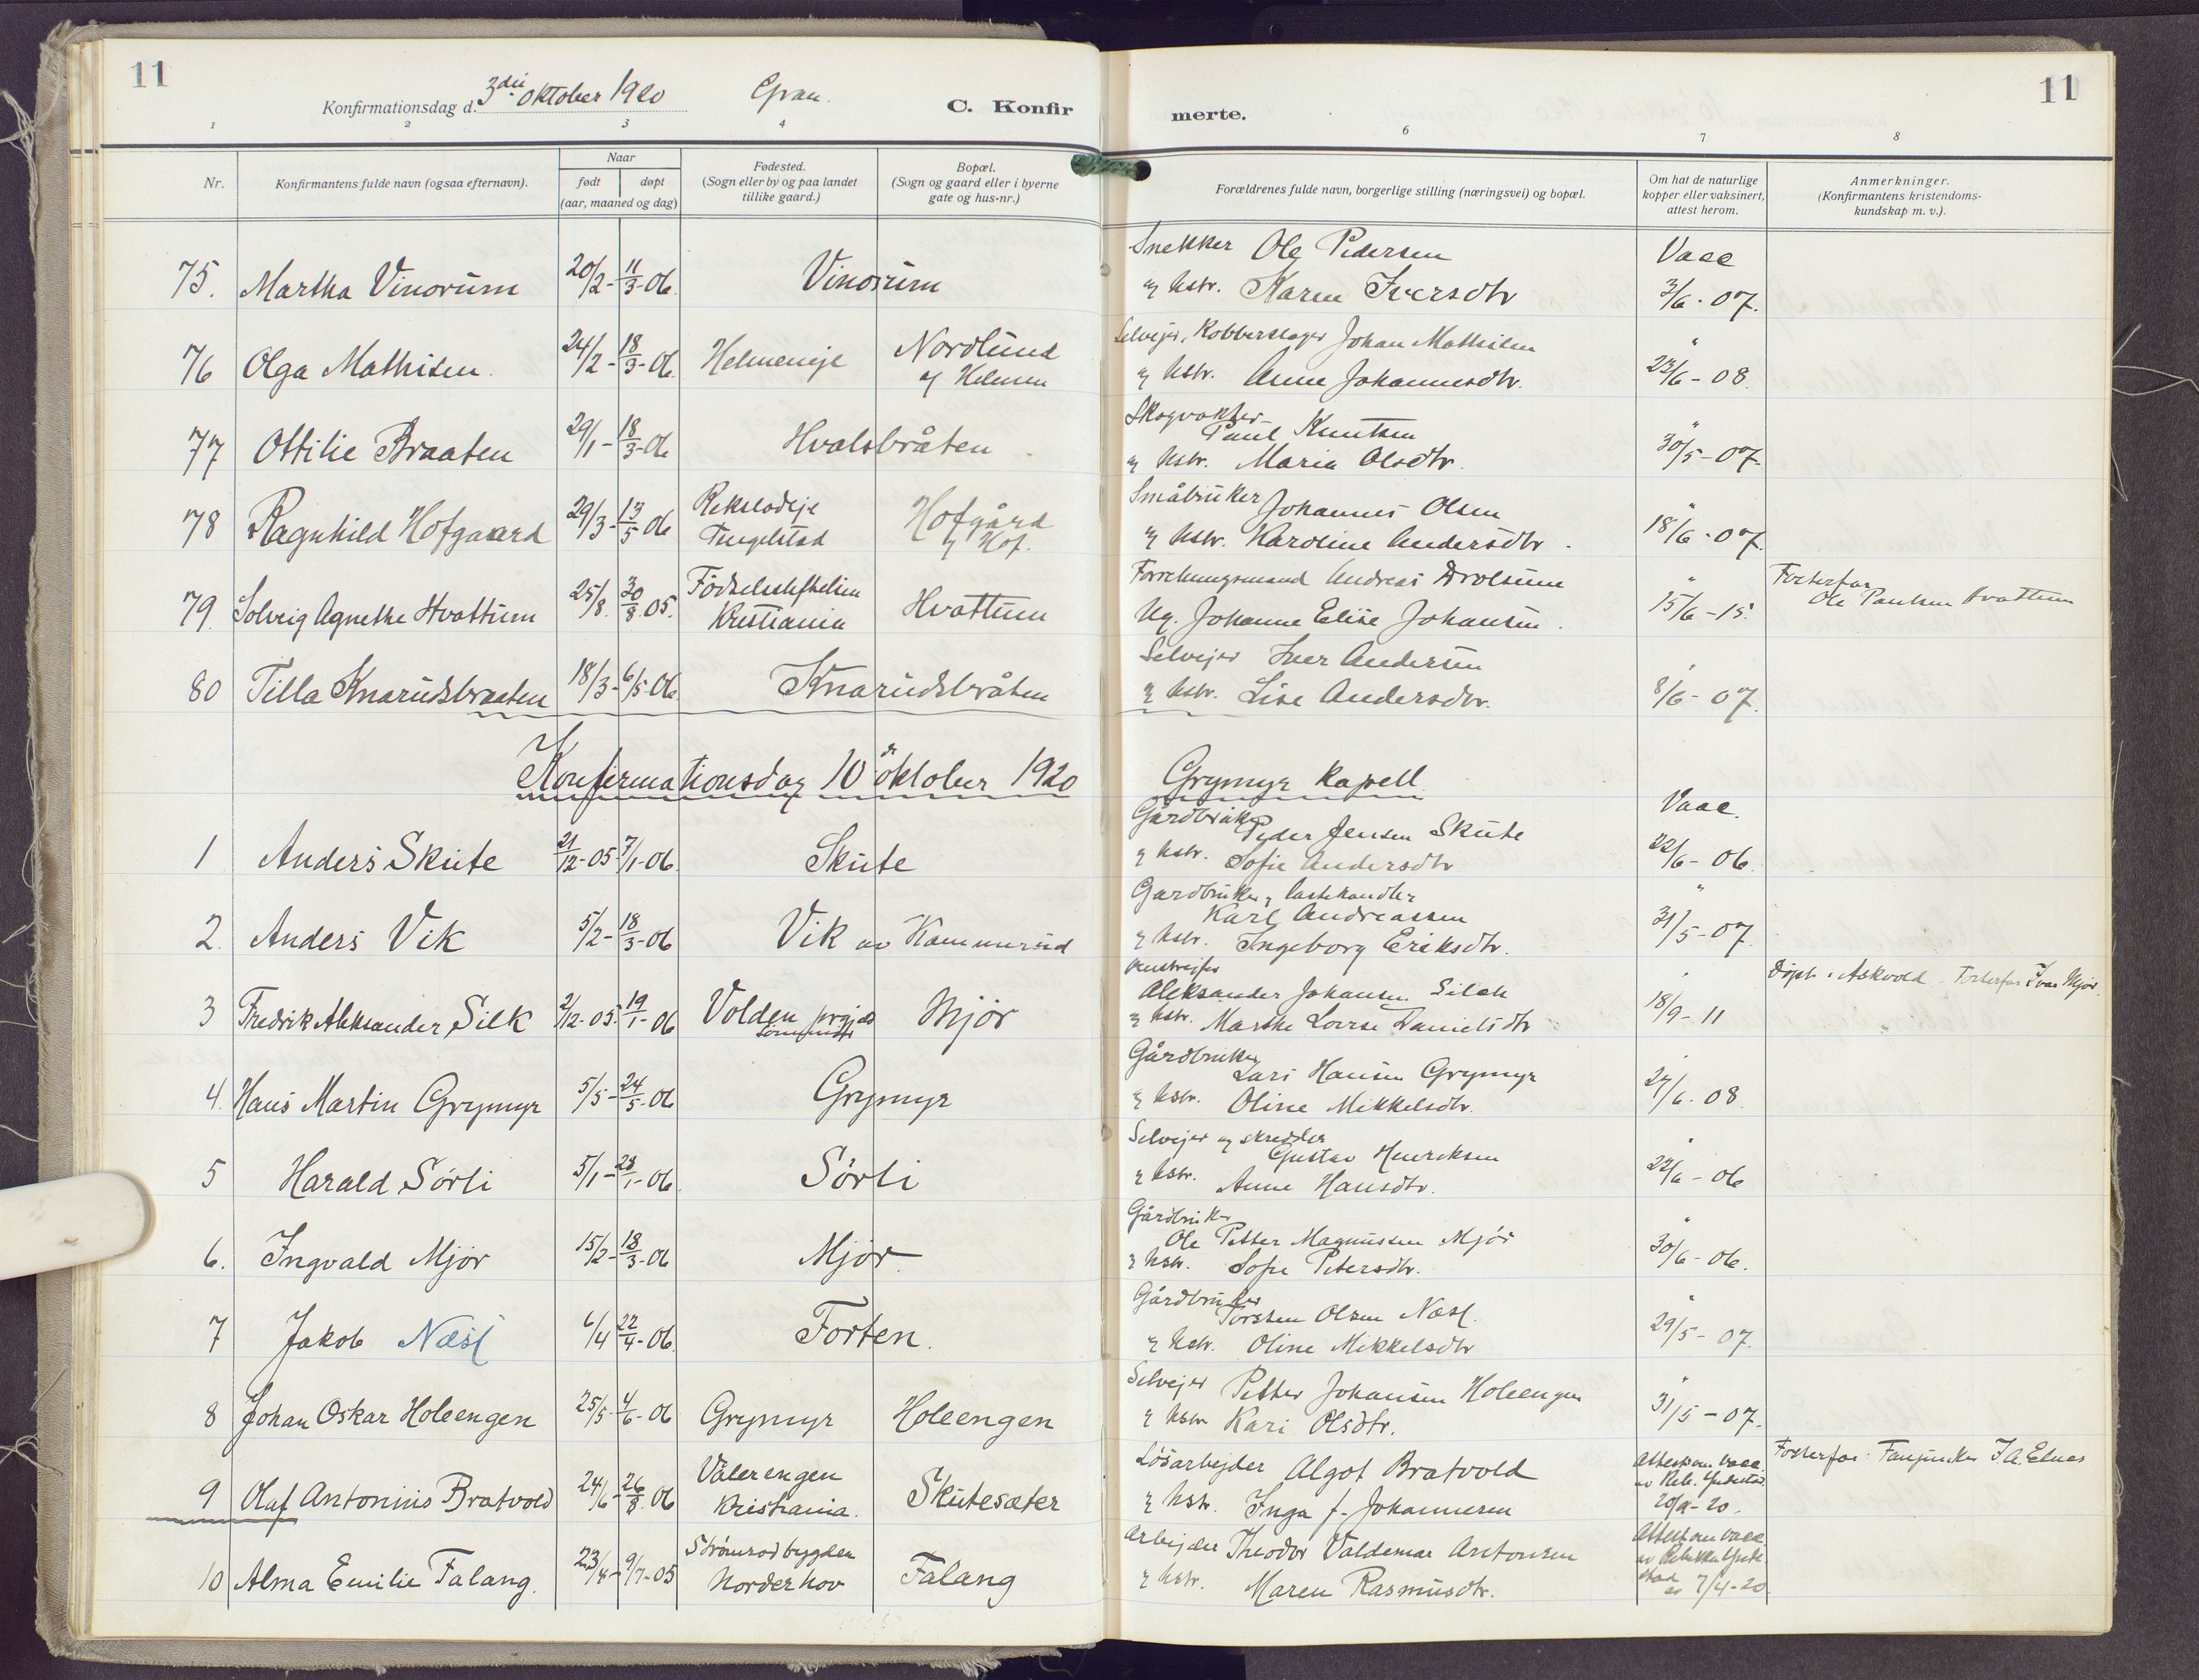 11
Konfirmationsdag d. 3die oktober 1920 Gran.
C. Konfirmerte.
11
1 2 3 4 6 7 8
Nr.
Konfirmantens fulde navn (ogsaa efternavn).
Naar
født døpt
(aar, maaned og dag)
Fødested.
(Sogn eller by og paa landet
tillike gaard.)
Bopæl.
(Sogn og gaard eller i byerne
gate og hus-nr.)
Forældrenes fulde navn, borgerlige stilling (næringsvei) og bopæl.
Om hat de naturlige
kopper eller vaksinert,
attest herom.
Anmerkninger.
(Konfirmantens kristendoms-
kundskap m. v.).
75. Martha Vinorum 20/2 - 11/3 - 06. Vinorum
Snekker Ole Pedersen
og hstr. Karen Iversdtr
Vacc
3/6 - 07.
76 Olga Mathisen. 24/2 - 18/3 - 06. Helmeneje
Nordlund
af Helmen
Selvejer, Kobberslager Johan Mathisen
og hstr. Anne Johannesdtr.
" 22/6 - 08.
77 Ottilie Braaten 29/1 - 18/3 - 06 Hvalsbråten
Skogvokter
Paul Knutsen
og hstr. Maria Olsdtr.
" 30/5 - 07.
78 Ragnhild Hofgaard 29/3 - 13/5 06
Tingelstad
Hofgård
af Hof.
Småbruker Johannes Olsen
og hstr. Karoline Andersdtr.
" 18/6 - 07.
79. Solveig Agnethe Hvattum 25/8. 30/8 05.
Födselsstiftelsen
Kristiania
Hvattum
Forretningsmand Andreas Drolsum
Ug. Johanne Elise Johansen.
" 15/6 - 15.
Fosterfar
Ole Paulsen Hvattum
80 Tilla Knarudsbraaten 18/3 - 6/5 - 06. Knarudsbråten
Selvejer Iver Andersen
og hstr. Lise Andersdtr.
" 8/6 - 07.
Konfirmationsdag 10de oktober 1920 Grymyr kapell
1 Anders Skute 21/12 - 05 - 7/1 - 06. Skute
Gårdbruker
Peder Jensen Skute
og hstr. Sofie Andersdtr
Vacc.
22/6 - 06.
2. Anders Vik 5/2 - 18/3 - 06 Vik av Kammerud
Gardbruker og lastehandler
Karl Andreassen
og hstr. Ingeborg Eriksdtr.
" 31/5 - 07.
3 Fredrik Aleksander Silk 2/12 - 05. 19/1 - 06
Volden prgjæld
Mjör
Aleksander Johansen Silch
og hstr. Marthe Lovise Danielsdtr
" 18/9 - 11
Döpt i Askvold. Fosterfar Ivar Mjör.
4. Hans Martin Grymyr 5/5 - 24/5 - 06 Grymyr
Gårdbruker
Lars Hansen Grymyr
og hstr. Oline Mikkelsdtr.
" 27/6 - 08.
5 Harald Sörli 5/1 - 28/1 - 06. Sörli
Selvejer og skredder
Gustav Henriksen
og hstr. Anne Hansdtr.
" 22/6 - 06
6. Ingvald Mjör 15/2 - 18/3 - 06 Mjör.
Gårdbruker
Ole Petter Magnussen Mjör
og hstr. Sofie Petersdtr.
" 30/6 - 06.
7 Jakob Næss 6/4 22/4 - 06. Forten.
Gårdbruker
Torsten Olsen Næss.
og hstr. Oline Mikkelsdtr
" 29/5 - 07.
8 Johan Oskar Holeengen 25/5 - 4/6 - 06 Grymyr Holeengen
Selvejer Petter Johansen Holeengen
og hstr Kari Olsdtr.
" 31/5 - 07.
9 Olaf Antonius Bratvold 24/6 - 26/8 - 06
Vålerengen
Kristiania.
Skutesæter
Lösarbejder Algot Bratvold
og hstr. Inga f. Johannesen
Attest om vacc.
20/9 - 20.
Fosterfar: J. A. Elnæs
10 Alma Emilie Falang. 23/4 - 9/7 - 05
Norderhov
Falang
Arbejder Theodor Valdemar Antonsen
og hstr. Maren Rasmusdtr.
Attest om vacc.
7/4 - 20.